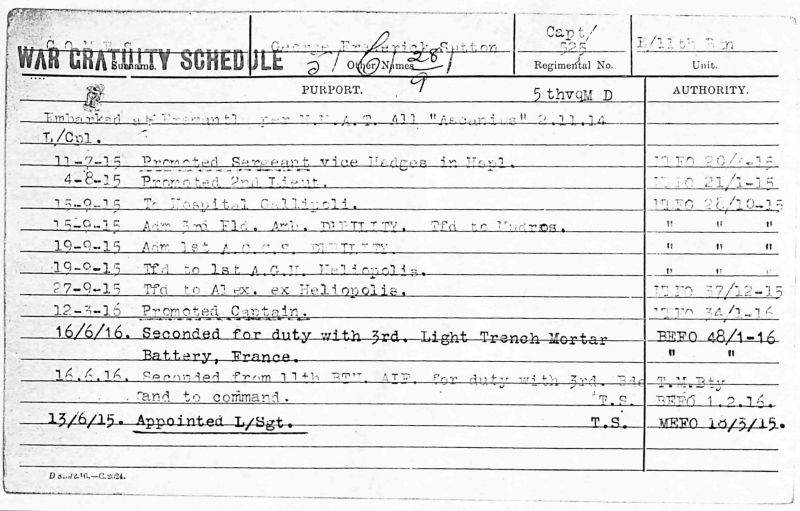 Capt/
George Frederick Sutton 525 E/11th Bn
WAR GRATUITY SCHEDULE
Surname. Other Names Regimental No. Unit.
28/9
PURPORT. 5thvqM D AUTHORITY.
Embarked at Fremantle per H.M.A.T. A11 "Ascanius" 2.11.14
L/Cpl.
11-7-15 Promoted Sergeant vice Hedges in Hspl. MEFO
4-8-15 Promoted 2nd Lieut. MEFO 21/1-15
15-9-15 To Hospital Gallipoli. MEFO 28/10-15
15-9-15 Adm 3rd Fld. Amb. DEBILITY. Tfd to Mudros. " " "
19-9-15 Adm 1st A.C.C.S. DEBILITY " " "
19-9-15 Tfd to 1st A.G.H. Heliopolis. " " "
27-9-15 Tfd to Alex. ex Heliopolis. MEFO 37/12-15
12-3-16 Promoted Captain. MEFO 34/1-16
16/6/16. Seconded for duty with 3rd. Light Trench Mortar BEFO 48/1-16
Battery, France. " "
16.6.16. Seconded from 11th BTN. AIF. for duty with 3rd. Bde T.M.Bty
and to command. T.S. BEFO 1.2.16.
13/6/15. Appointed L/Sgt. T.S. MEFO 18/3/15.